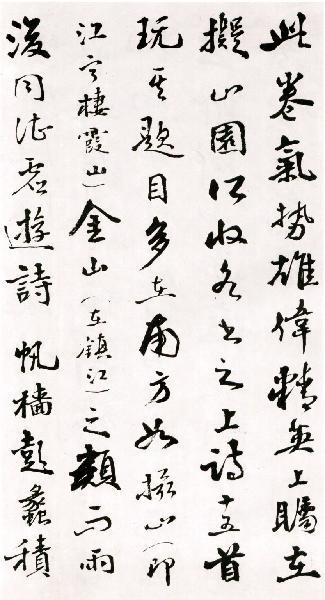 此卷氣勢雄偉精上在
擬山園所收各書之上詩十五首
玩其題目多在南方如攝山（即
江寧棲霞山）金山（在鎮江）之類而雨
後同君遊詩帆檣彭蠡積